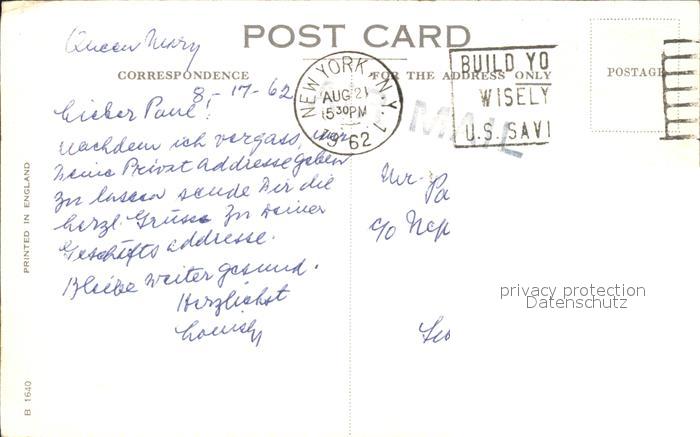 Queen Mary
POST CARD
CORRESPONDENCE
FOR THE ADDRESS ONLY
8-17-62
Lieber Paul!
Nachdem ich vergass, mir
Deine Privat addresse geben
zu lassen sende Dir die
herzl. Grüsse zu Deiner
Geschäfts addresse.
Bleibe weiter gesund.
Herzlichst
NEW YORK, N.Y. 1
AUG 21
530PM
1962
AIR MAIL
BUILD YO
WISELY
U.S. SAVI
POSTAGE
Mr. Pa
c/o
privacy protection
Datenschutz
PRINTED IN ENGLAND
B 1640